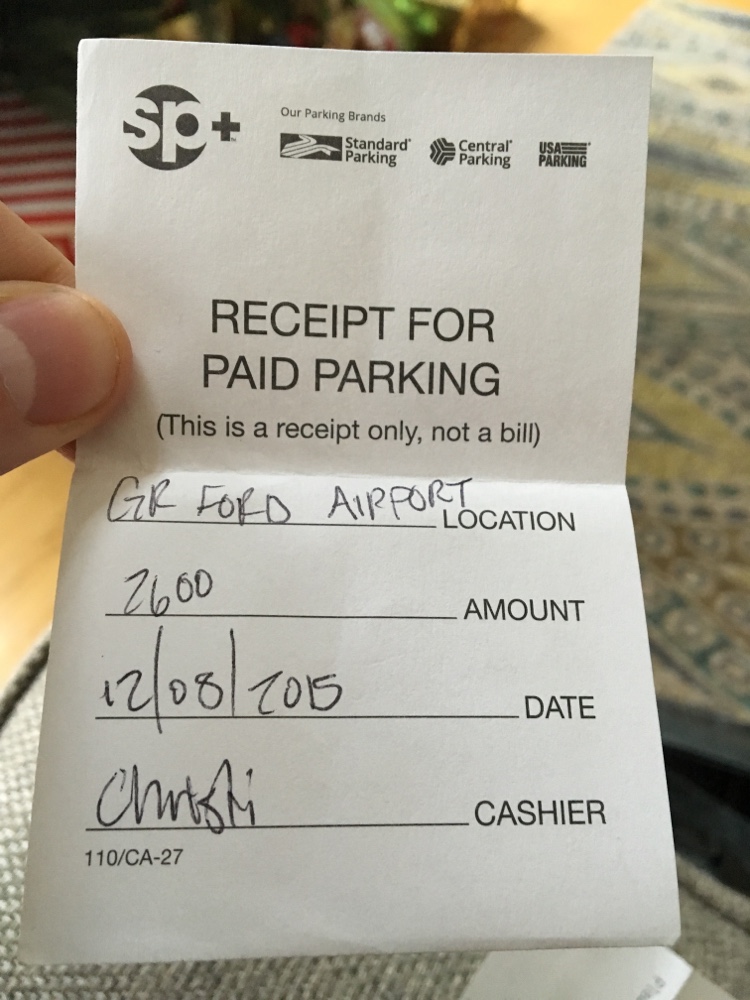 sp+
Our Parking Brands
Standard® Parking
Central® Parking
USA PARKING
RECEIPT FOR
PAID PARKING
(This is a receipt only, not a bill)
GR FORD AIRPORT LOCATION
2600 AMOUNT
12/08/2015 DATE
Christi CASHIER
110/CA-27